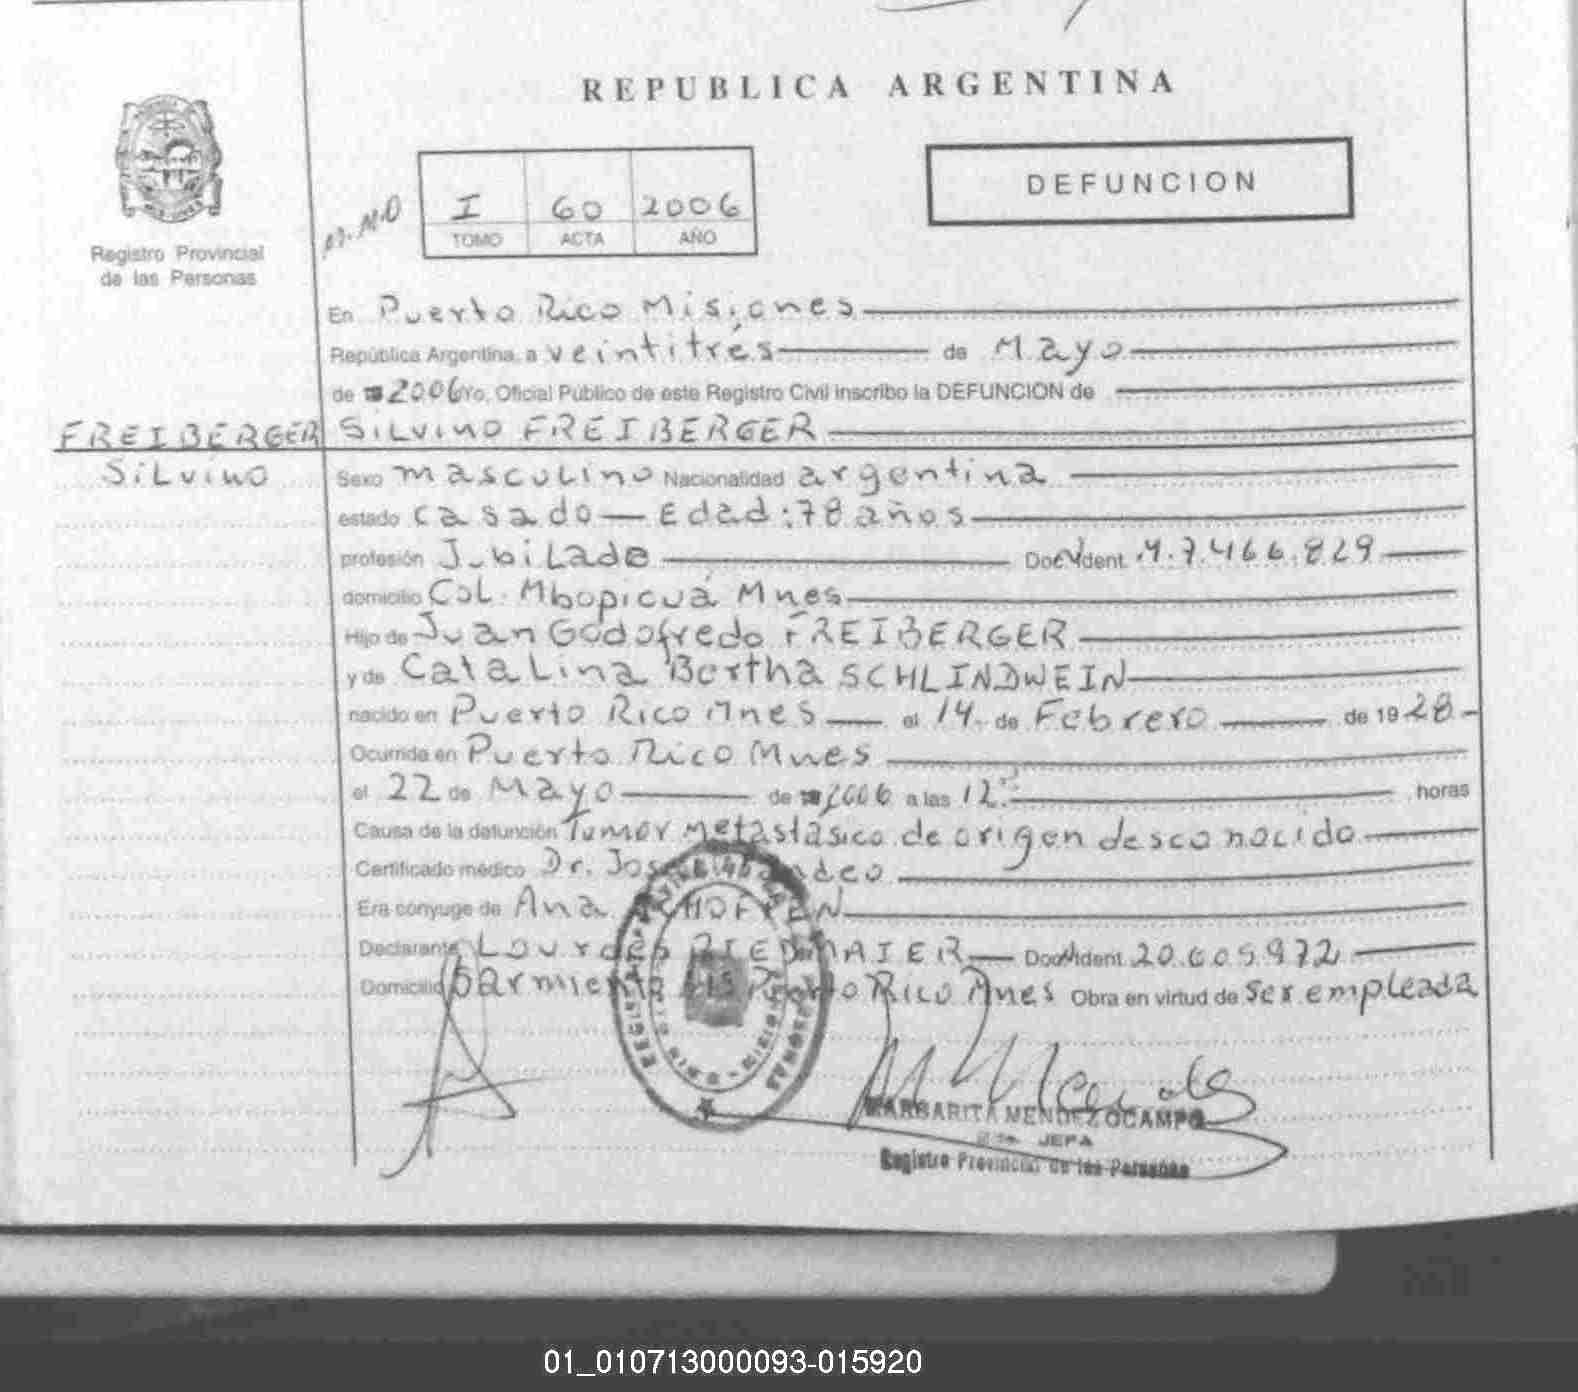 REPUBLICA ARGENTINA
DEFUNCION
I 60 2006
TOMO ACTA AÑO
Registro Provincial
de las Personas
En Puerto Rico Misiones
República Argentina, a veintitrés de Mayo
de 2006 Yo, Oficial Público de este Registro Civil inscribo la DEFUNCION de
FREIBERGER SILVINO FREIBERGER
Silvino Sexo masculino Nacionalidad argentina
estado casado - Edad: 78 años
profesión Jubilado Doc. Ident. M.7.466.829
domicilio Col. Mbopicuá Mnes
Hijo de Juan Godofredo FREIBERGER
y de Catalina Bertha SCHLINDWEIN
nacido en Puerto Rico Mnes el 14 de Febrero de 1928
Ocurrida en Puerto Rico Mnes
el 22 de Mayo de 2006 a las 12 horas
Causa de la defunción Tumor metastásico de origen desconocido
Certificado médico Dr. José
Era cónyuge de Ana
Declarante Lourdes RIEDMAIER Doc. Ident. 20.605.972
Domicilio Sarmiento Puerto Rico Mnes Obra en virtud de ser empleada
MARGARITA MENDEZ OCAMPO
JEFA
Registro Provincial de las Personas
01_010713000093-015920